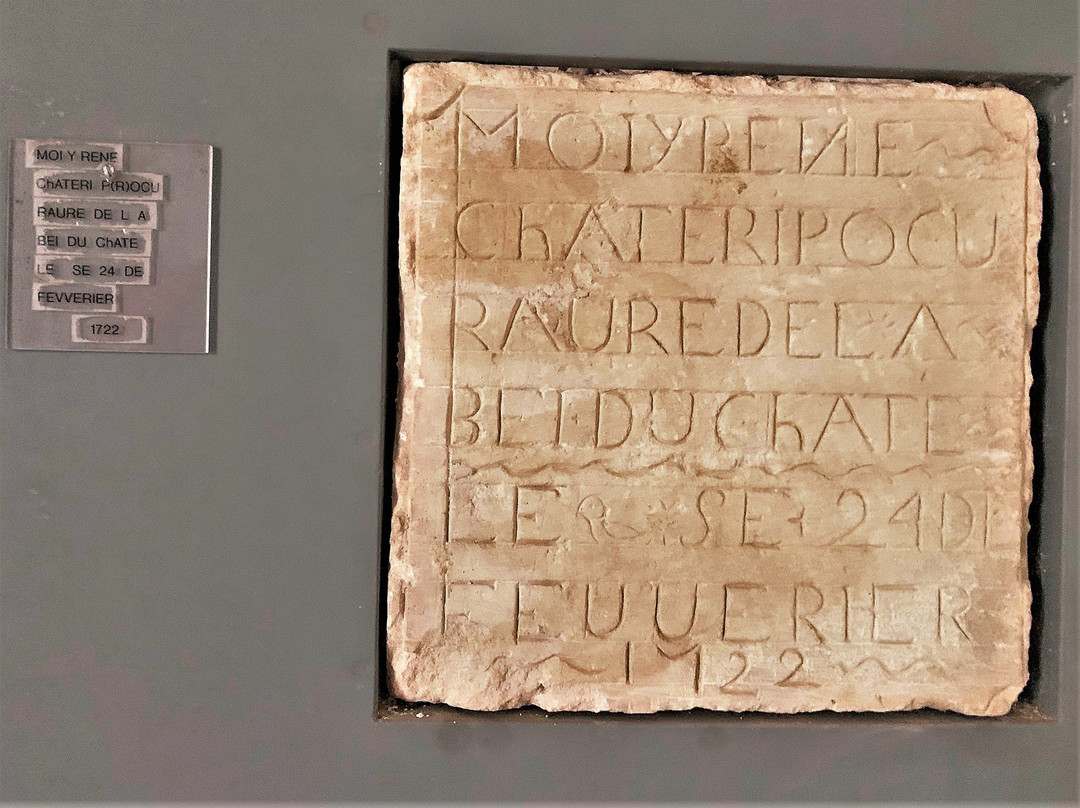 MOI Y RENE
ChATERI P(R)OCU
RAURE DE L A
BEI DU ChATE
LE SE 24 DE
FEVVERIER
1722
MOIYRENE
ChATERIPOCU
RAUREDELA
BEIDUChATE
LE SE 24DE
FEUUERIER
1722